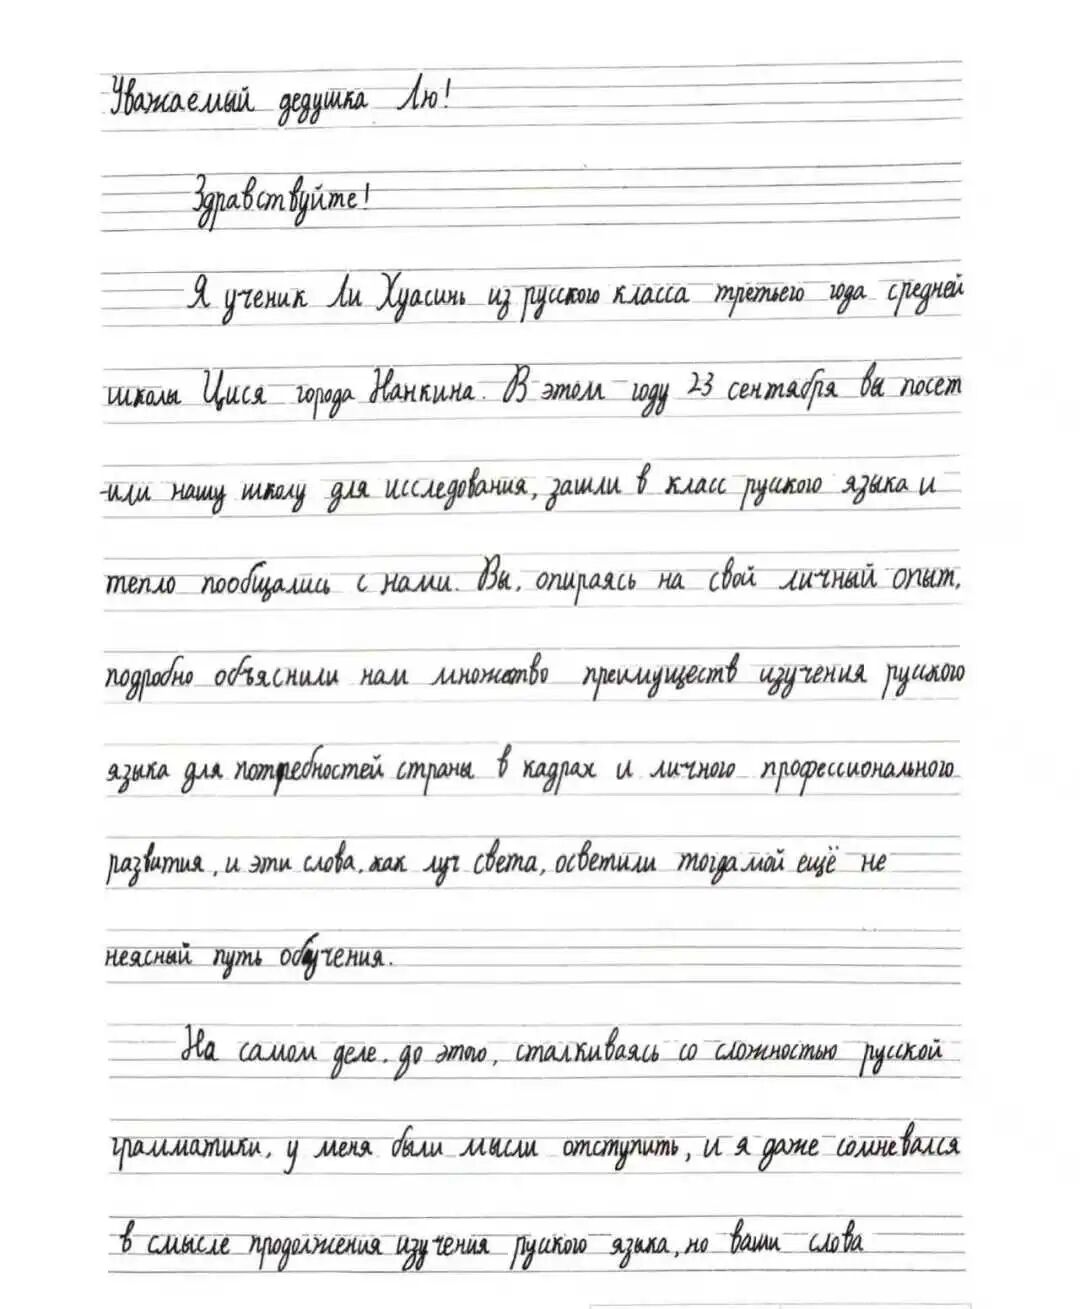 Уважаемый дедушка Лю!
Здравствуйте!
Я ученик Ли Хуасинь из русского класса третьего года средней
школы Цися города Нанкина. В этом году 23 сентября вы посет
-или нашу школу для исследования, зашли в класс русского языка и
тепло пообщались с нами. Вы, опираясь на свой личный опыт,
подробно объяснили нам множество преимуществ изучения русского
языка для потребностей страны в кадрах и личного профессионального
развития, и эти слова, как луч света, осветили тогда мой ещё не
неясный путь обучения.
На самом деле, до этого, сталкиваясь со сложностью русской
грамматики, у меня были мысли отступить, и я даже сомневался
в смысле продолжения изучения русского языка, но ваши слова